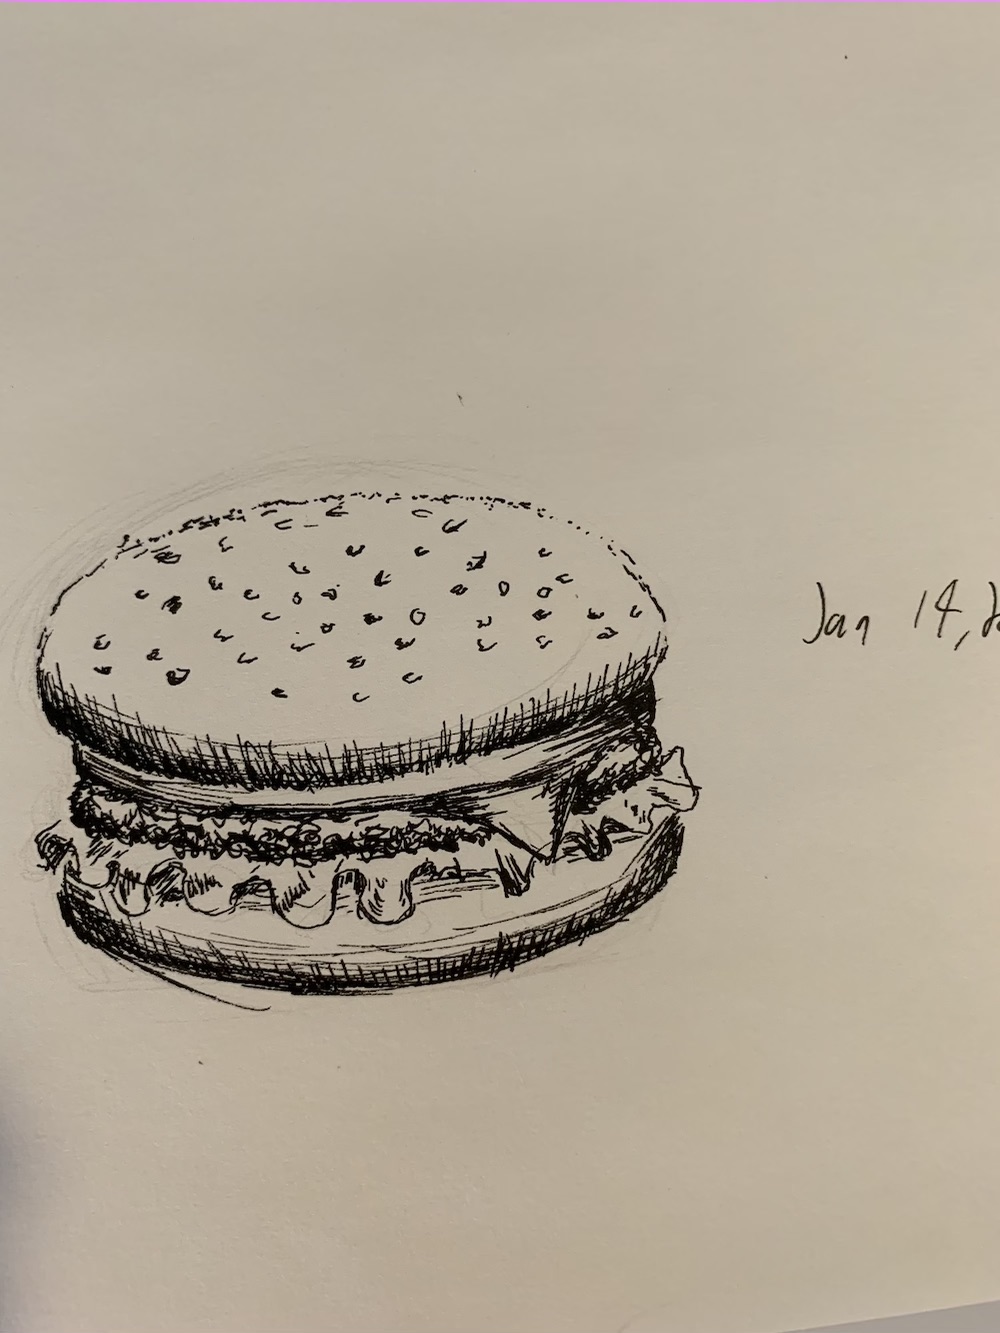 Jan 14,